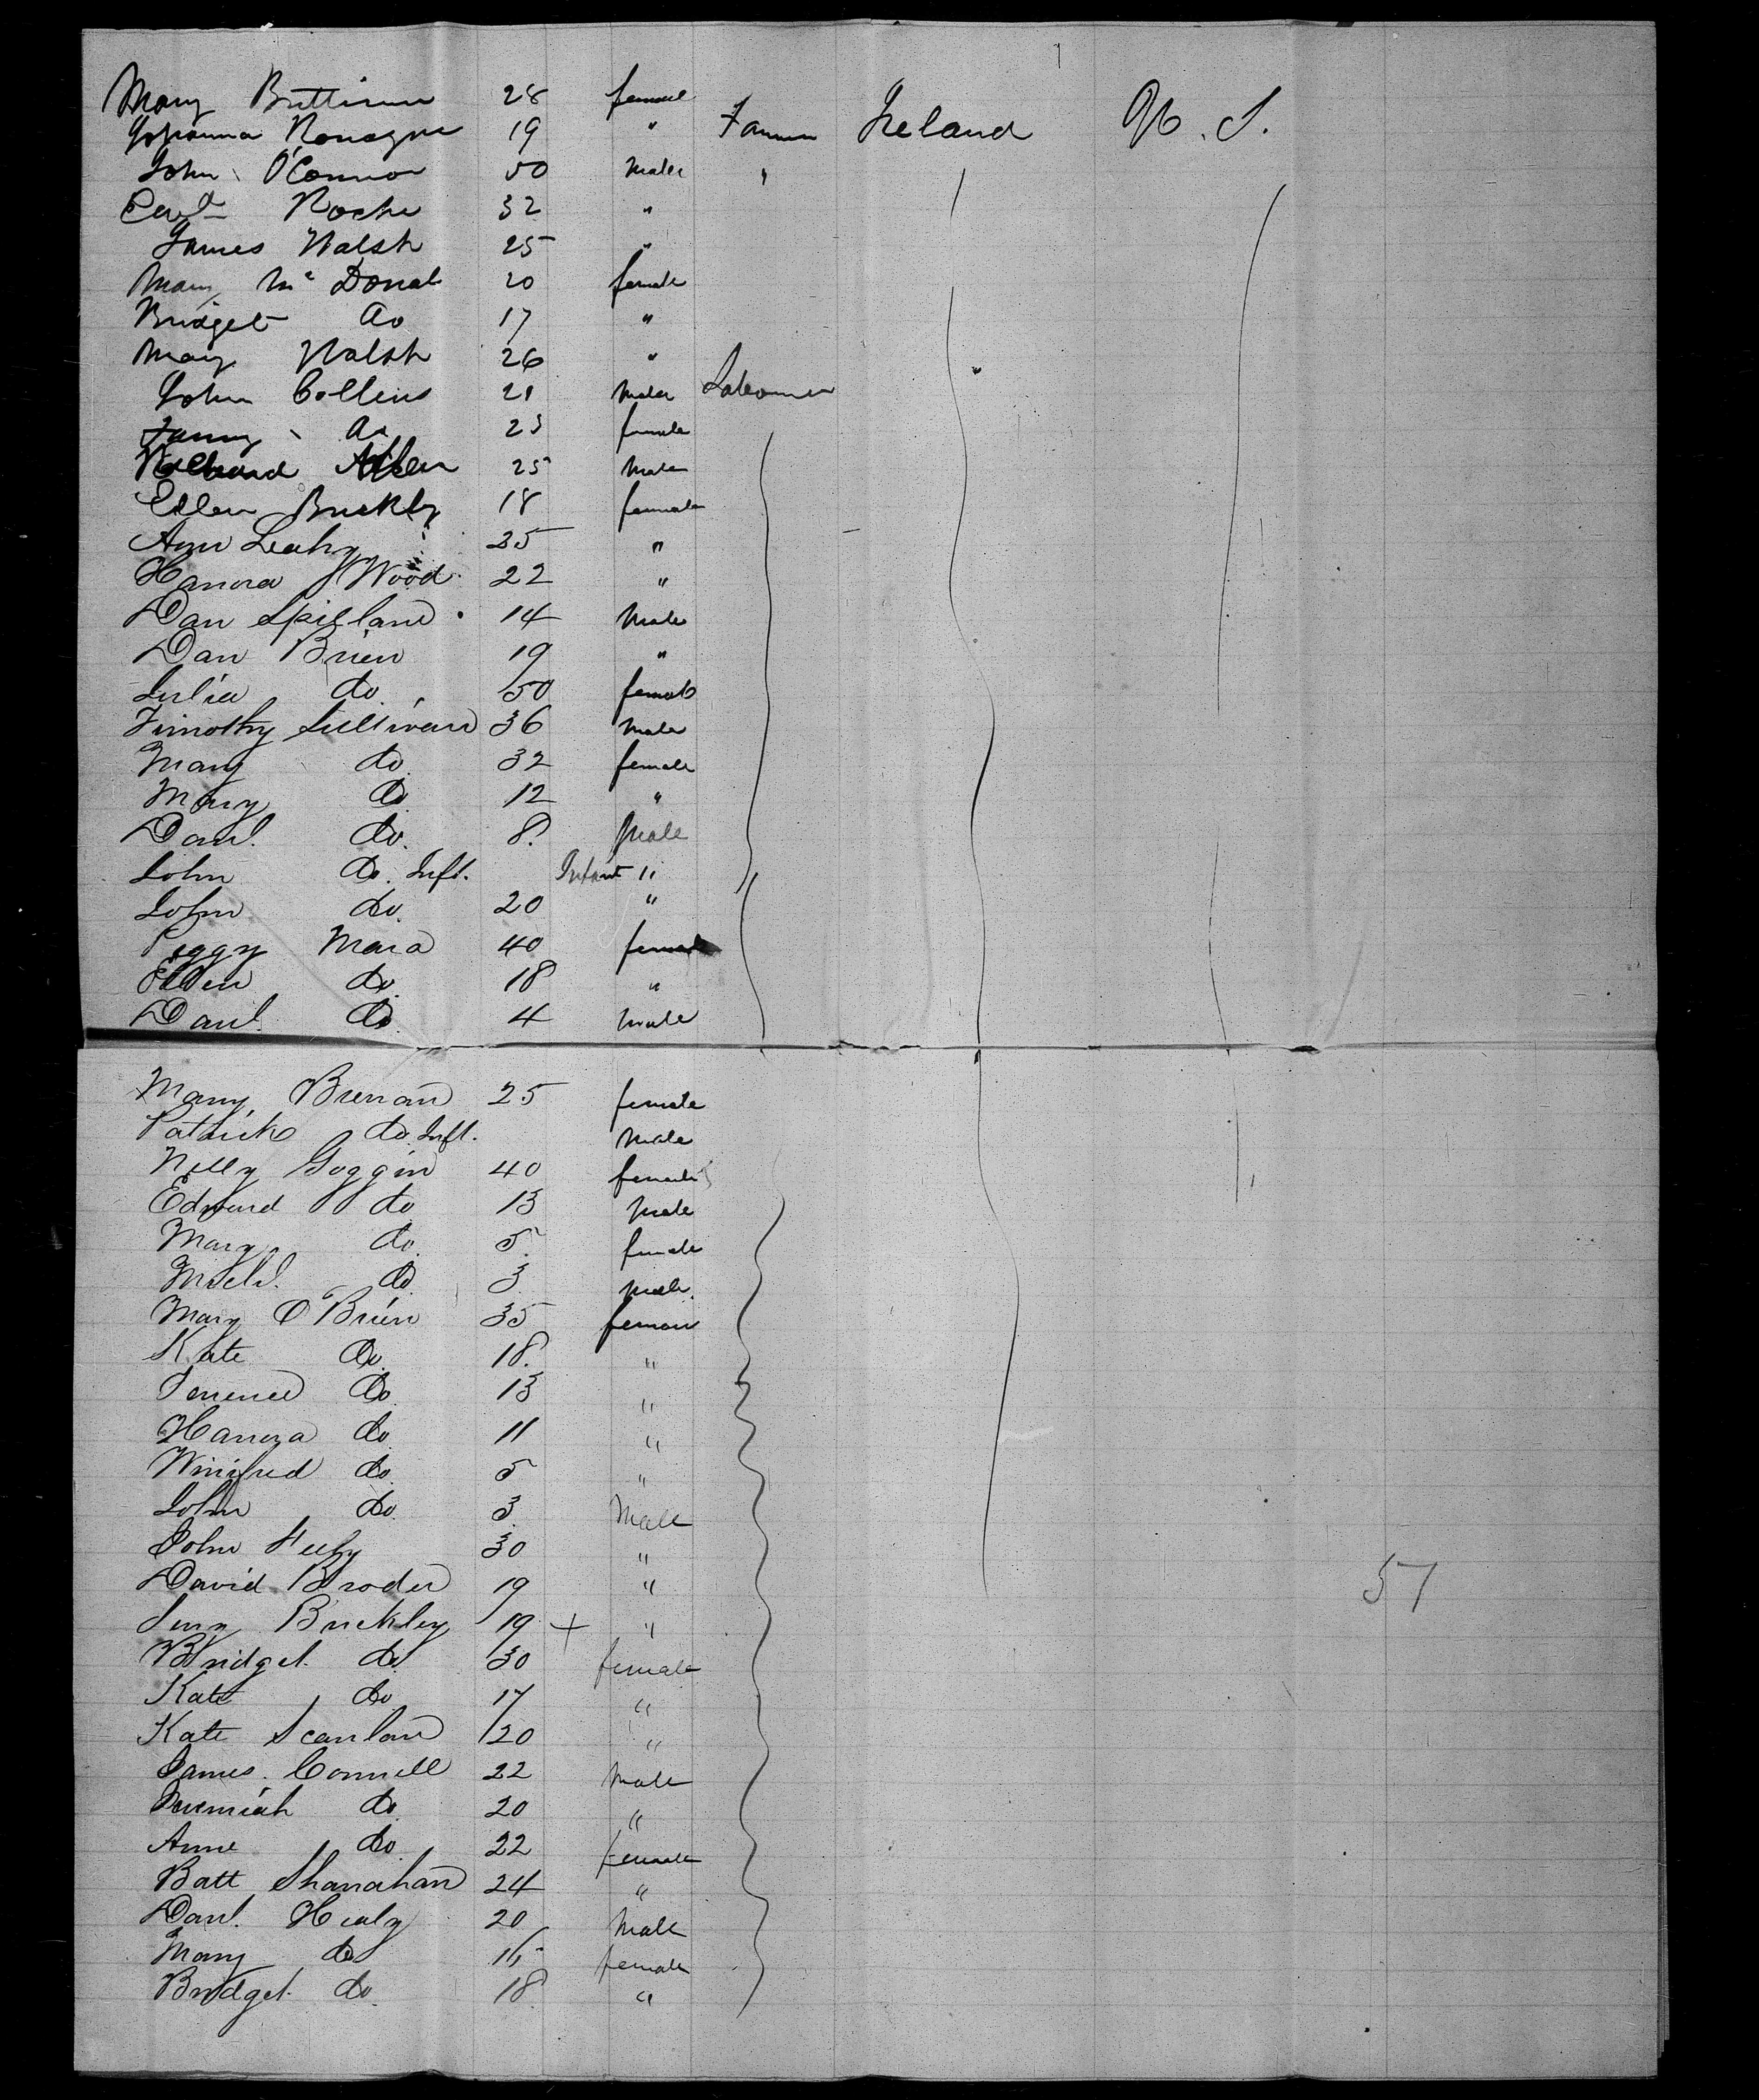 Mary 28 female
Johanna 19 " Farmer Ireland U. S.
John O'Connor 50 Male "
Roche 32 "
James Walsh 25 "
Mary Mc Donal 20 female
Bridget do 17 "
Mary Walsh 26 "
John Collins 21 Male Labourer
Fanny do 23 female
Richard Allen 25 Male
Ellen Buckley 18 female
Ann Leahy 25 "
Hanora Wood 22 "
Dan Spillane 14 Male
Dan Brien 19 "
Julia do. 50 female
Timothy Sullivan 36 Male
Mary do. 32 female
Mary do. 12 "
Danl. do. 8. Male
John do. Inft. Infant "
John do. 20 "
Peggy Mara 40 female
Ellen do. 18 "
Danl. do. 4 Male
Mary Brenan 25 female
Patrick do. Inft. Male
Nelly Goggin 40 female
Edward do 13 Male
Mary do. 5. female
Michl. do. 3. Male.
Mary O'Brien 35 female
Kate do. 18. "
Terence do. 13 "
Hanora do. 11 "
Winifred do. 5 "
John do. 3. Male
John 30 "
David Broder 19 " 57
Buckley 19 + "
Bridget do. 30 female
Kate do 17 "
Kate Scanlan 20 "
James. Connell 22 Male
Jeremiah do. 20 "
Anne do. 22 female
Batt Shanahan 24 "
Danl. Healy 20 Male
Mary do female
Bridget do. 18. "